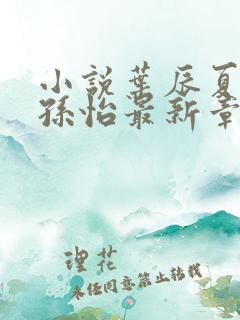 小說葉辰夏
孫怡最新章
理花
未任同意禁止转载